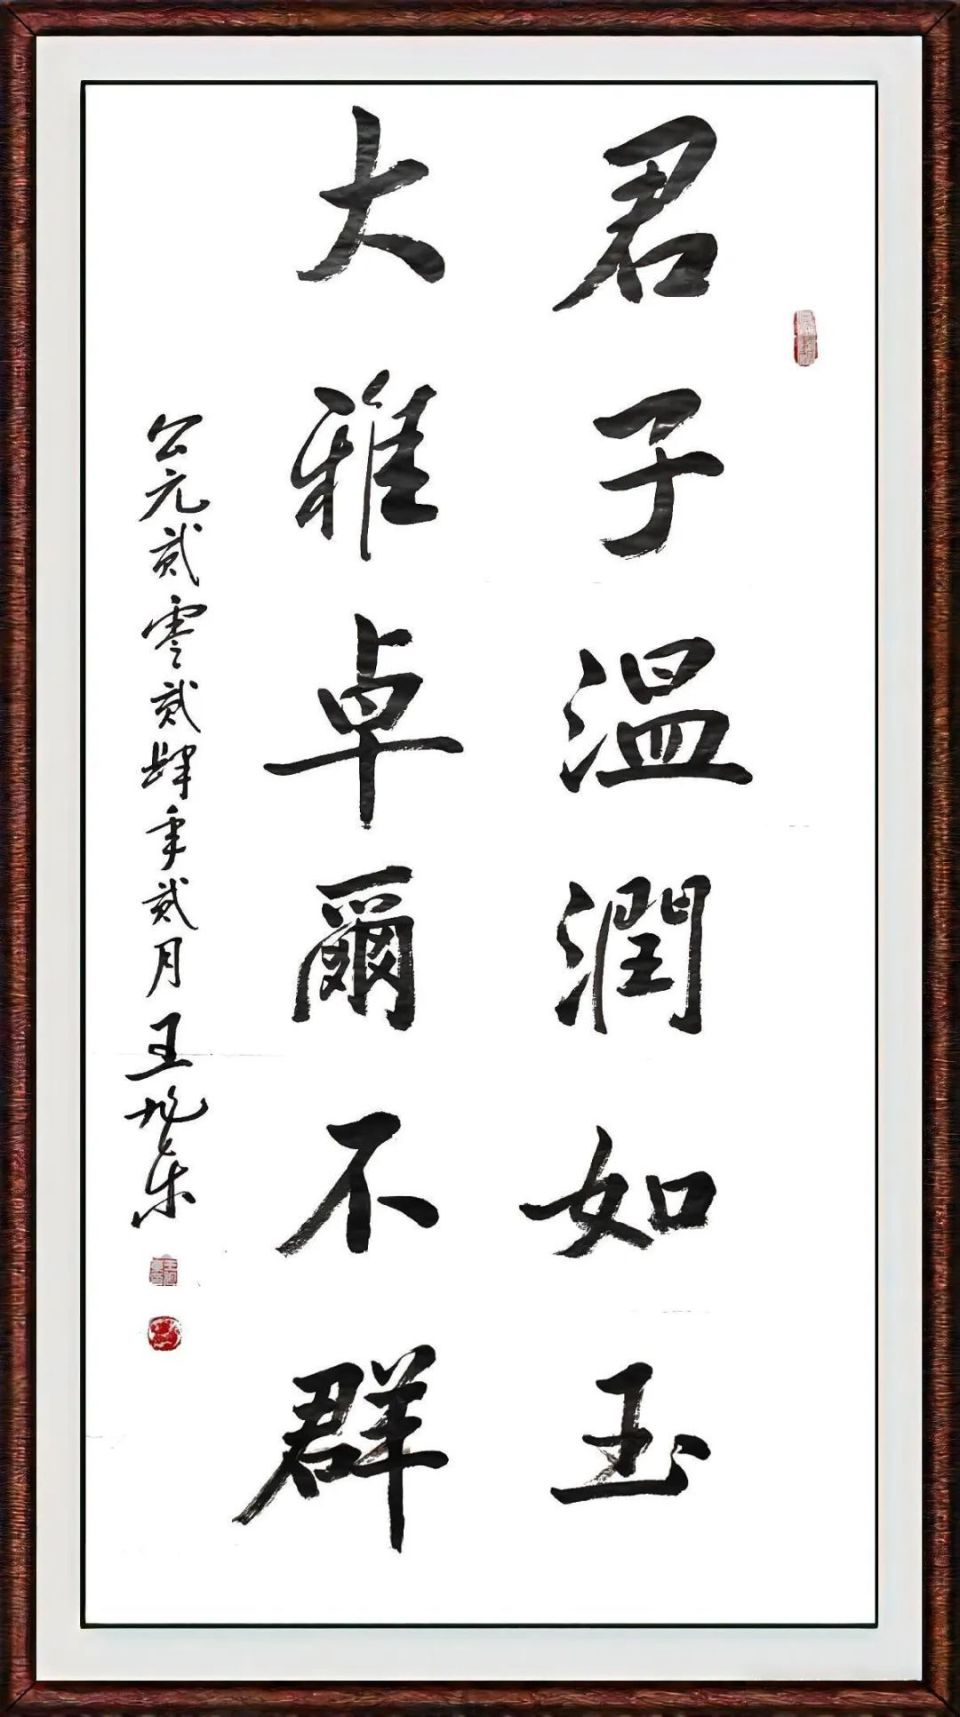 君子溫潤如玉
大雅卓爾不群
公元贰零贰肆年贰月王旭东